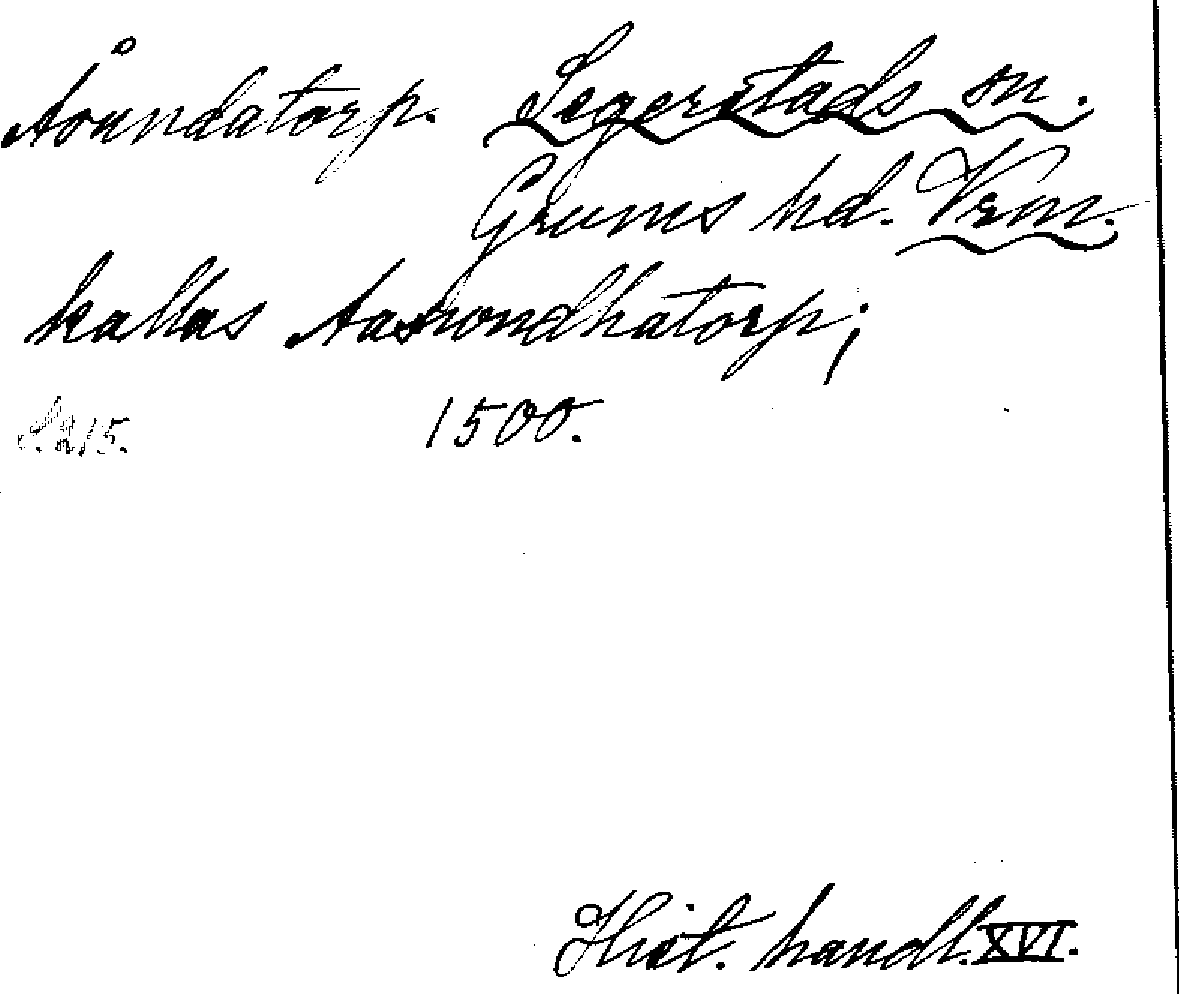 Åsundatorp. Segerstads sn.
Grums hd. Verm.
kallas Aasondhatorp;
S. 215. 1500.
Hist. handl. XVI.